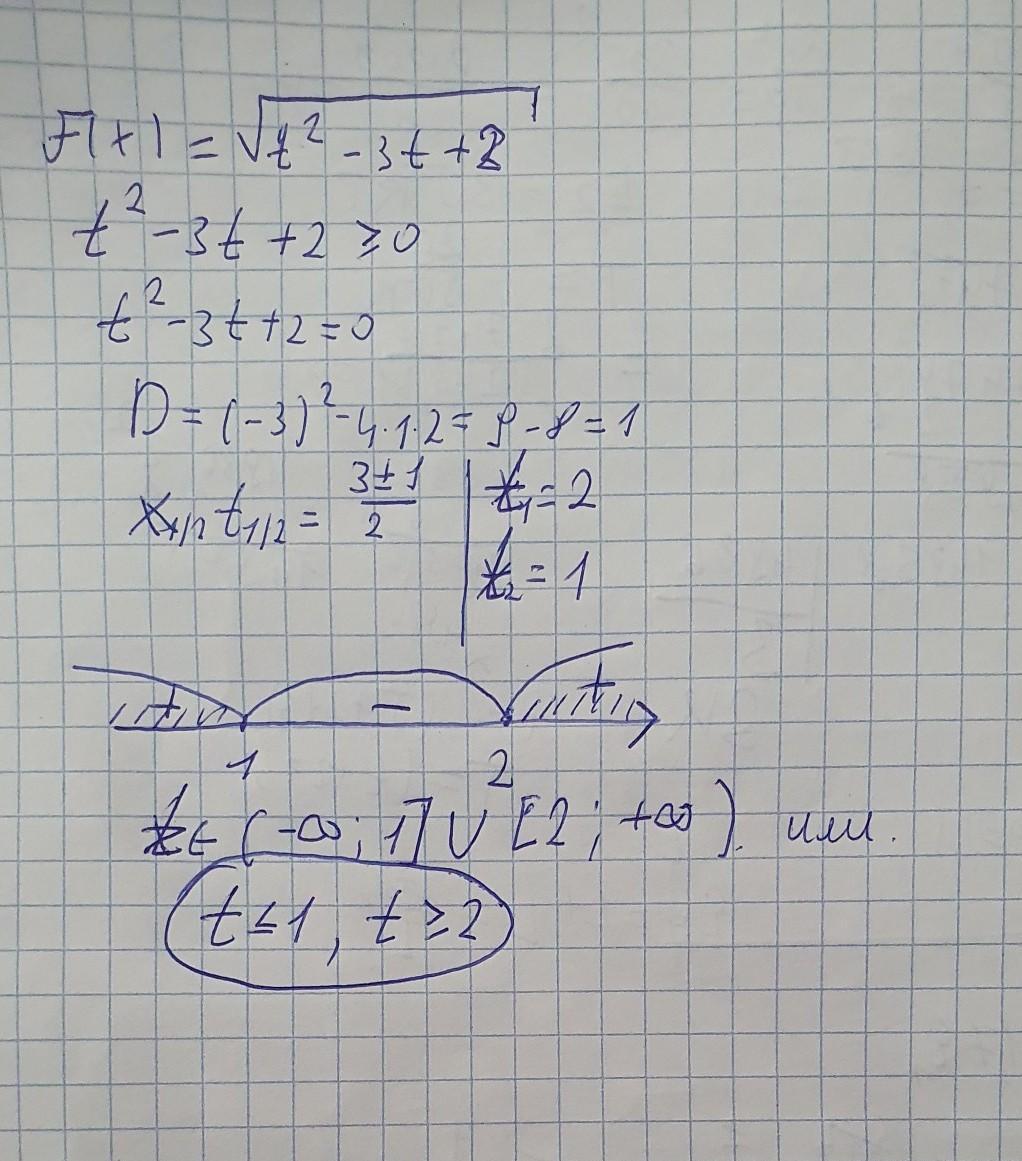 F(t) = √t² - 3t + 2
t² - 3t + 2 ≥ 0
t² - 3t + 2 = 0
D = (-3)² - 4·1·2 = 9 - 8 = 1
t₁/₂ = (3 ± 1)/2 | t₁ = 2
t₂ = 1
+ - +
1 2
t ∈ (-∞; 1] ∪ [2; +∞). или.
t ≤ 1, t ≥ 2